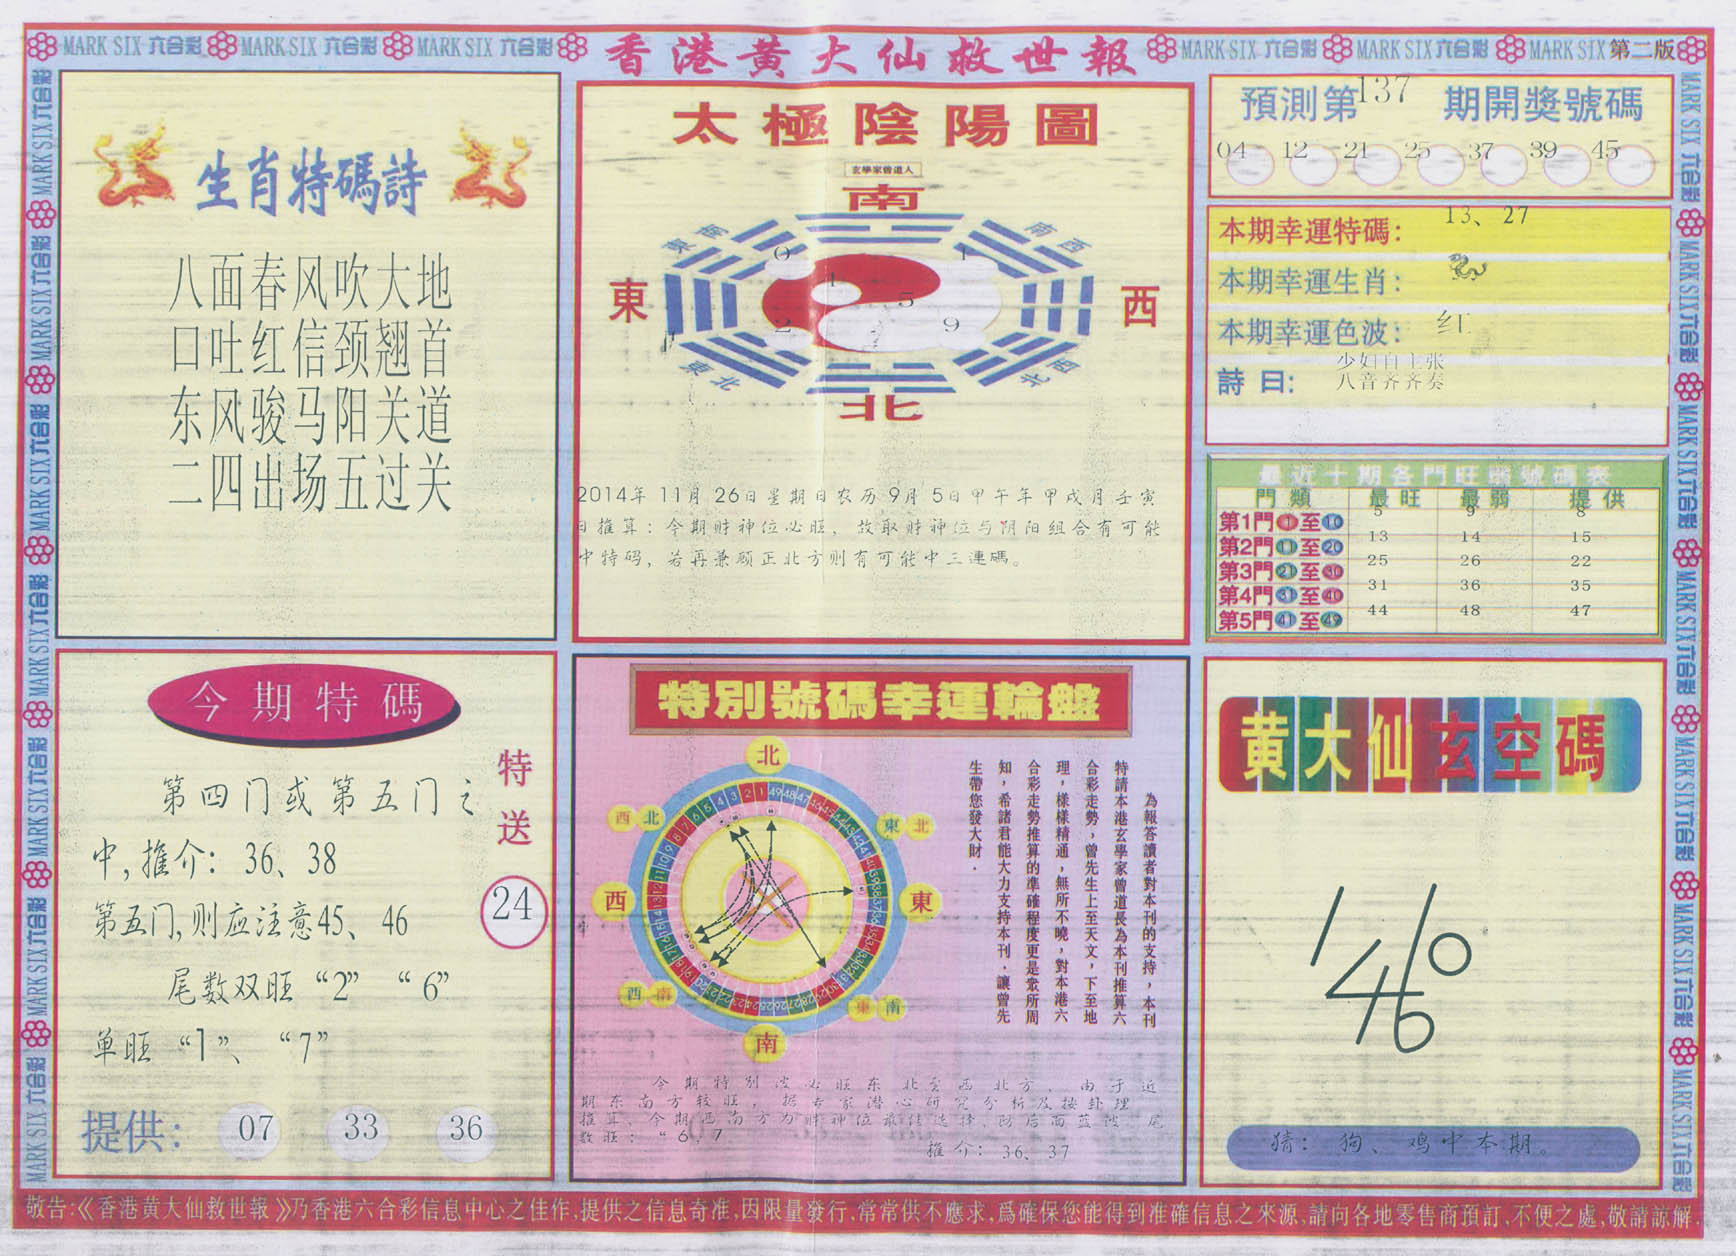 MARK SIX 六合彩 MARK SIX 六合彩 MARK SIX 六合彩
香港黄大仙救世報
MARK SIX 六合彩 MARK SIX 六合彩 MARK SIX 第二版
生肖特碼詩
八面春风吹大地
口吐红信颈翘首
东风骏马阳关道
二四出场五过关
太極陰陽圖
玄學家曾道人
南
西南
東
西
東北
西北
北
0
1
1
5
2
9
2014年 11月 26日星期日农历 9月 5日甲午年甲戌月壬寅
日推算：今期财神位必旺，故取财神位与阴阳组合有可能
中特码，若再兼顾正北方则有可能中三連碼。
預測第137期開獎號碼
04 12 21 25 37 39 45
本期幸運特碼：13、27
本期幸運生肖：
本期幸運色波：红
詩曰：
少妇自主张
八音齐齐奏
最近十期各門旺弱號碼表
門類 最旺 最弱 提供
第1門 1 至 10 5 9 8
第2門 11 至 20 13 14 15
第3門 21 至 30 25 26 22
第4門 31 至 40 31 36 35
第5門 41 至 49 44 48 47
今期特碼
第四门或第五门之
中,推介：36、38
第五门,则应注意45、46
尾数双旺“2”“6”
单旺“1”、“7”
特送
24
提供：07 33 36
特別號碼幸運輪盤
北
西北
東北
西
東
西南
東南
南
為報答讀者對本刊的支持，本刊
特請本港玄學家曾道長為本刊推算六
合彩走勢，曾先生上至天文，下至地
理，樣樣精通，無所不曉，對本港六
合彩走勢推算的準確程度更是眾所周
知，希諸君能大力支持本刊．讓曾先
生帶您發大財．
今期特别波必旺东北至西北方，由于近
期东南方较旺，据专家潜心研究分析及按卦理
推算，今期西南方为财神位最佳选择，防后面蓝波，尾
数旺：“6，7
推介：36、37
黄大仙玄空碼
1460
猜：狗、鸡中本期。
敬告:《香港黄大仙救世報》乃香港六合彩信息中心之佳作,提供之信息奇准,因限量發行,常常供不應求,爲確保您能得到准確信息之來源,請向各地零售商預訂,不便之處,敬請諒解.